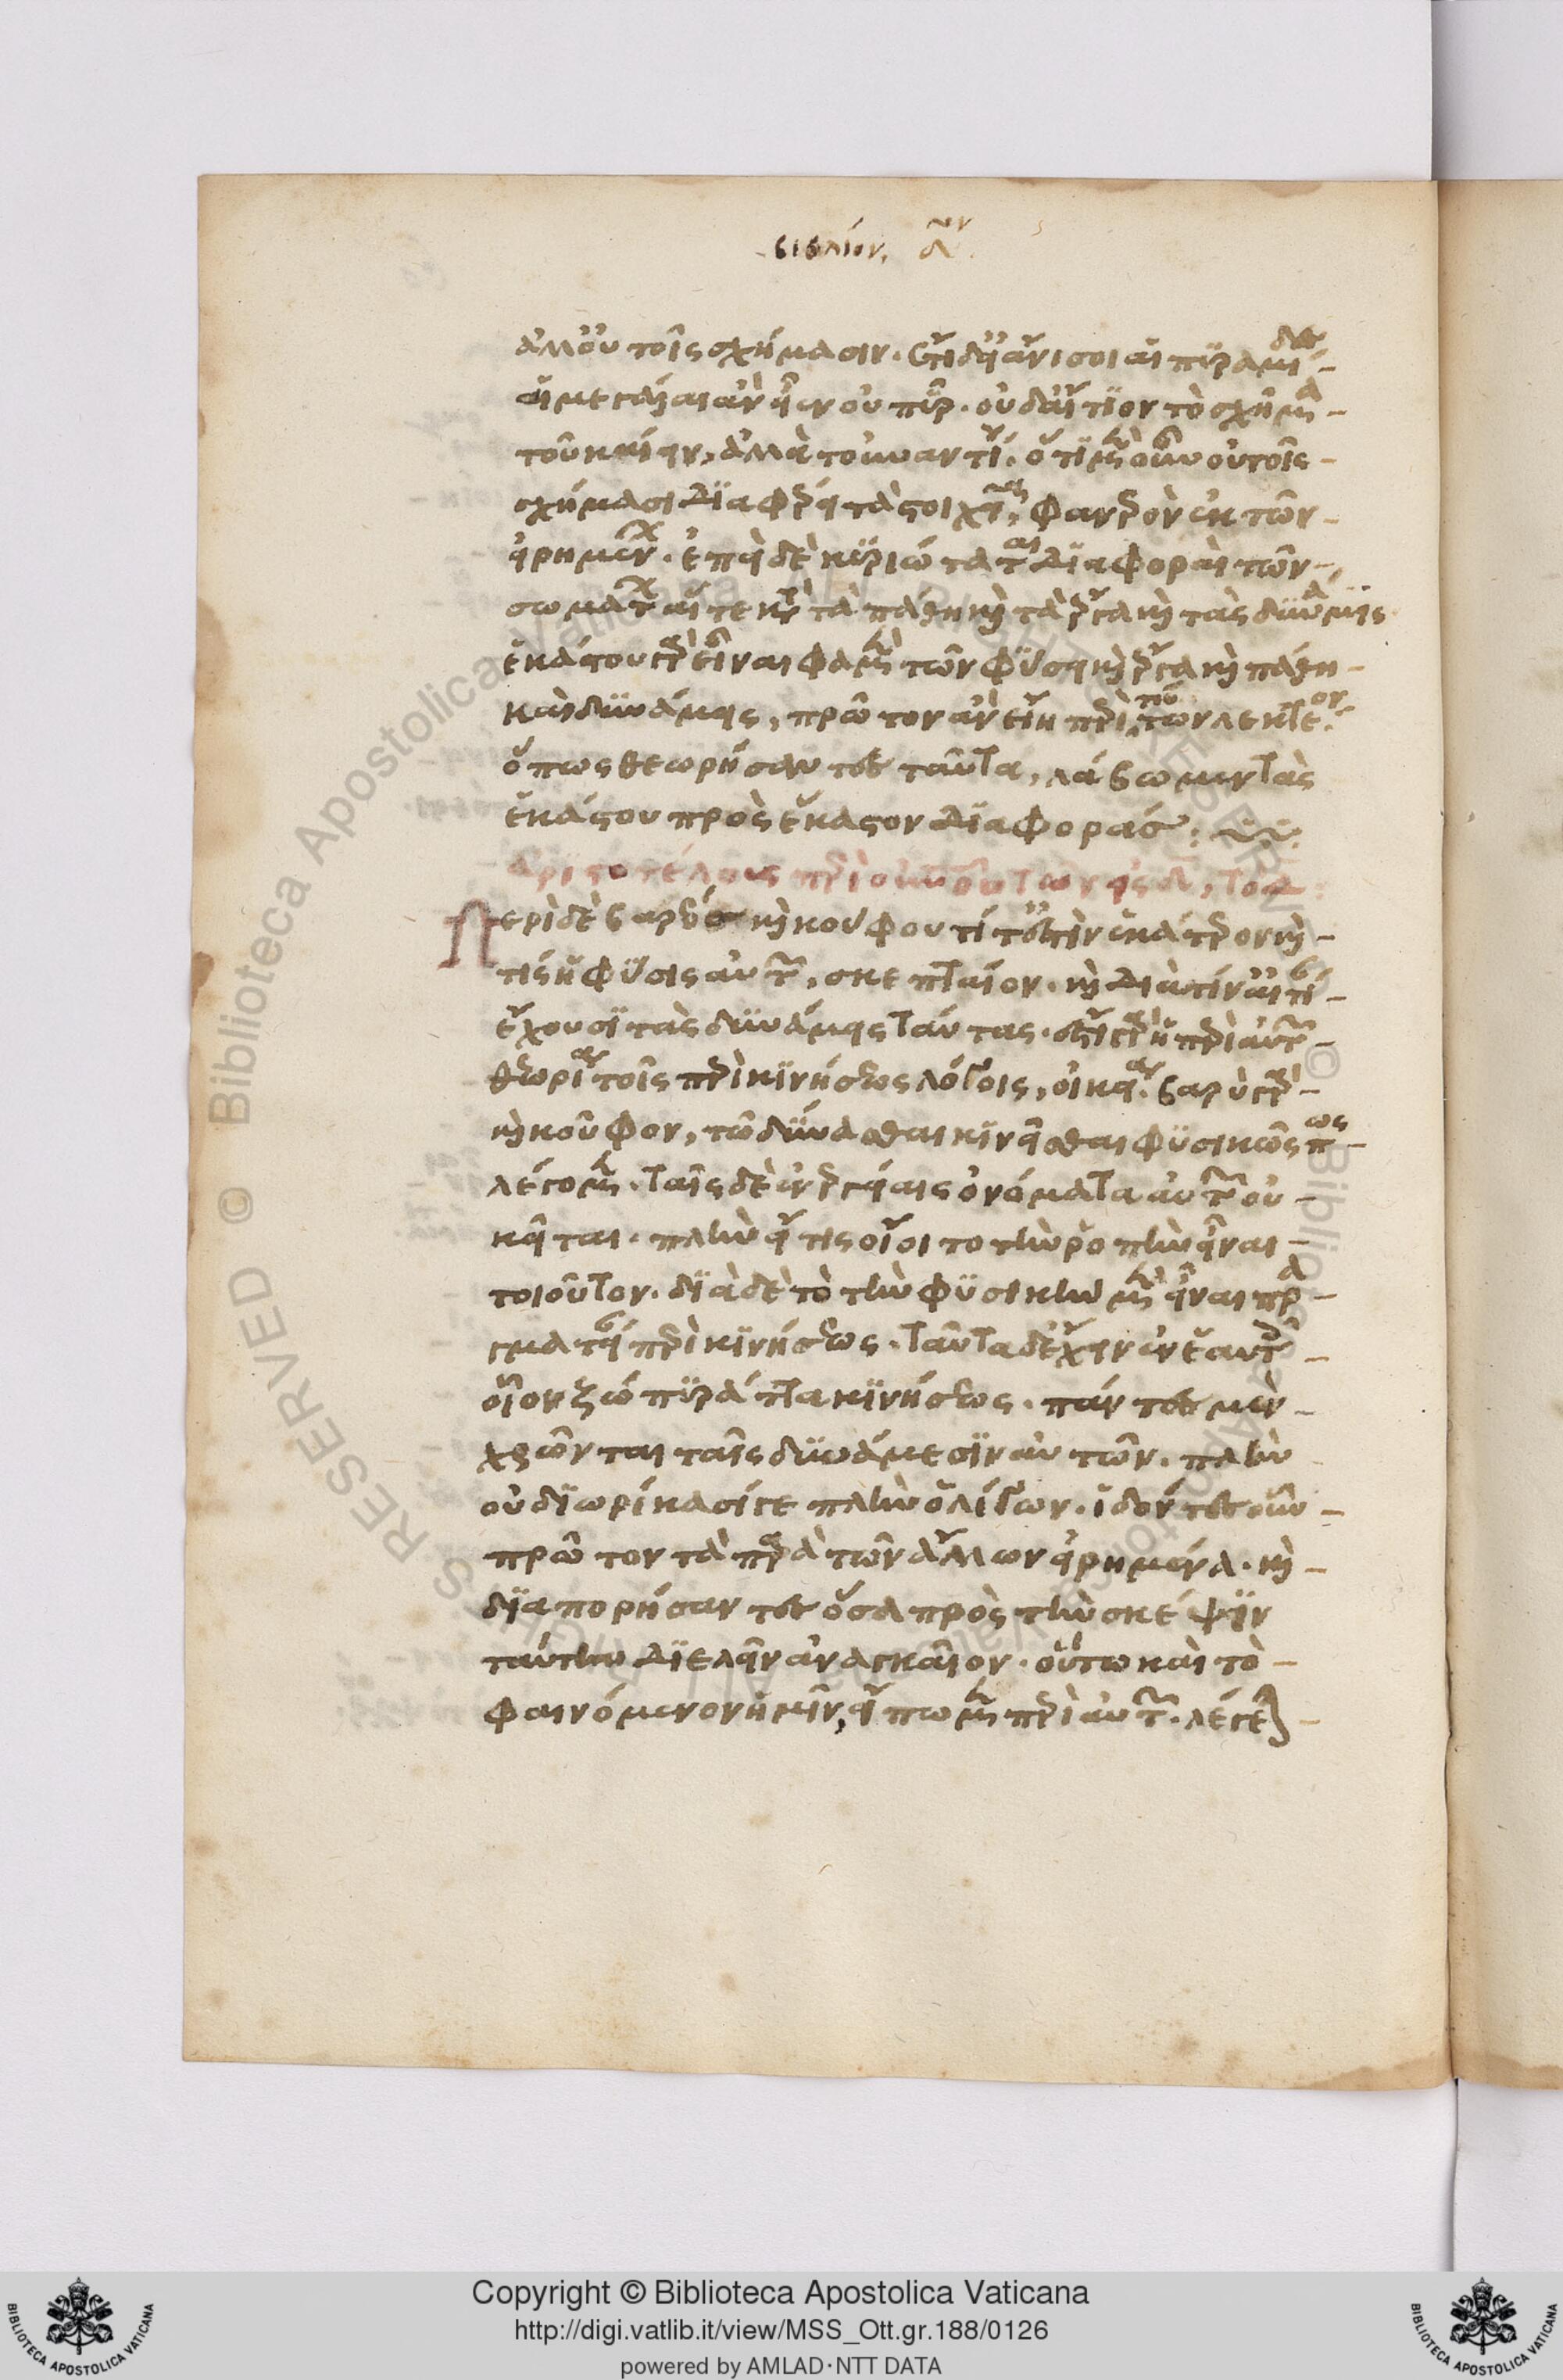 βιβλίον, δον
ἀλλ' οὐ τοῖς σχήμασιν. ἔτι δ' εἰ ἄνισοι αἱ πυραμίδες
αἱ μεγάλαι ἂν εἶεν οὐ πῦρ. οὐδ' αἴτιον τὸ σχῆμα
τοῦ καίειν, ἀλλὰ τοὐναντίον. ὅτι μὲν οὖν οὐ τοῖς
σχήμασι διαφέρει τὰ στοιχεῖα, φανερὸν ἐκ τῶν
εἰρημένων. ἐπεὶ δὲ κυριώταται διαφοραὶ τῶν
σωμάτων αἵ τε κατὰ τὰ πάθη καὶ τὰ ἔργα καὶ τὰς δυνάμεις
ἑκάστου γὰρ εἶναι φαμὲν τῶν φύσει καὶ ἔργα καὶ πάθη
καὶ δυνάμεις, πρῶτον ἂν εἴη περὶ τούτων λεκτέον.
ὅπως θεωρήσαντες ταῦτα, λάβωμεν τὰς
ἑκάστου πρὸς ἕκαστον διαφοράς:
Ἀριστοτέλους περὶ οὐρανοῦ τῶν εἰς δ, τὸ δ:
Περὶ δὲ βαρέος καὶ κούφου τί τ' ἐστὶν ἑκάτερον καὶ
τίς ἡ φύσις αὐτῶν, σκεπτέον. καὶ διὰ τίν' αἰτίαν
ἔχουσι τὰς δυνάμεις ταύτας. ἔστι γὰρ ἡ περὶ αὐτῶν
θεωρία τοῖς περὶ κινήσεως λόγοις, οἰκεία. βαρὺ γὰρ
καὶ κοῦφον, τῷ δύνασθαι κινεῖσθαι φυσικῶς πως
λέγομεν. ταῖς δὲ ἐνεργείαις ὀνόματα αὐτῶν οὐ
κεῖται. πλὴν εἴ τις οἴοιτο τὴν ῥοπὴν εἶναι
τοιοῦτον. διὰ δὲ τὸ τὴν φυσικὴν μὲν εἶναι πρα
γματείαν περὶ κινήσεως. ταῦτα δ' ἔχειν ἐν ἑαυτοῖς
οἷον ζώπυρ' ἄττα κινήσεως. πάντες μὲν
χρῶνται ταῖς δυνάμεσιν αὐτῶν. πλὴν
οὐ διωρίκασί γε πλὴν ὀλίγων. ἰδόντες οὖν
πρῶτον τὰ παρὰ τῶν ἄλλων εἰρημένα. καὶ
διαπορήσαντες ὅσα πρὸς τὴν σκέψιν
ταύτην διελεῖν ἀναγκαῖον. οὕτω καὶ τὸ
φαινόμενον ἡμῖν, εἴπωμεν περὶ αὐτῶν. λέγεται
Copyright © Biblioteca Apostolica Vaticana
http://digi.vatlib.it/view/MSS_Ott.gr.188/0126
powered by AMLAD·NTT DATA